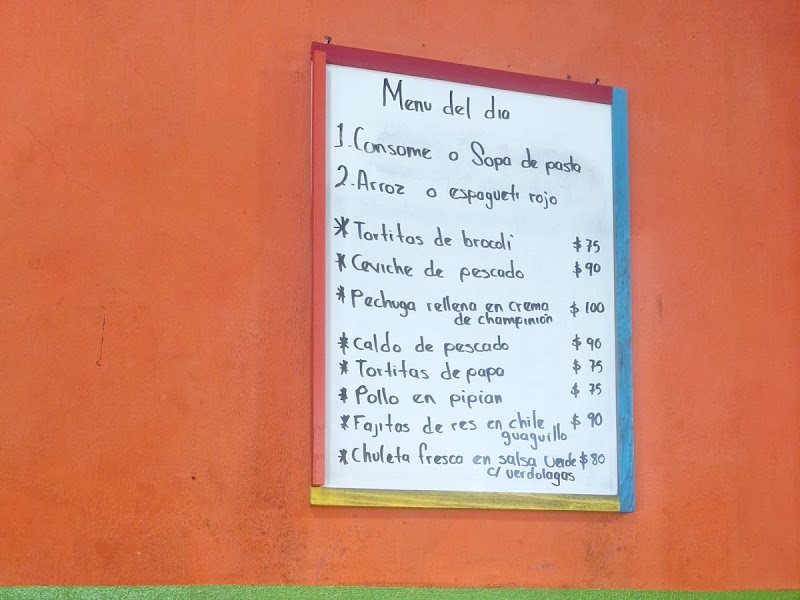 Menu del dia
1. Consome o Sopa de pasta
2. Arroz o espagueti rojo
* Tortitas de brocoli $75
* Ceviche de pescado $90
* Pechuga rellena en crema $100
de champiñion
* Caldo de pescado $90
* Tortitas de papa $75
* Pollo en pipian $75
* Fajitas de res en chile $90
guaguillo
* Chuleta fresca en salsa verde $80
c/ verdolagas